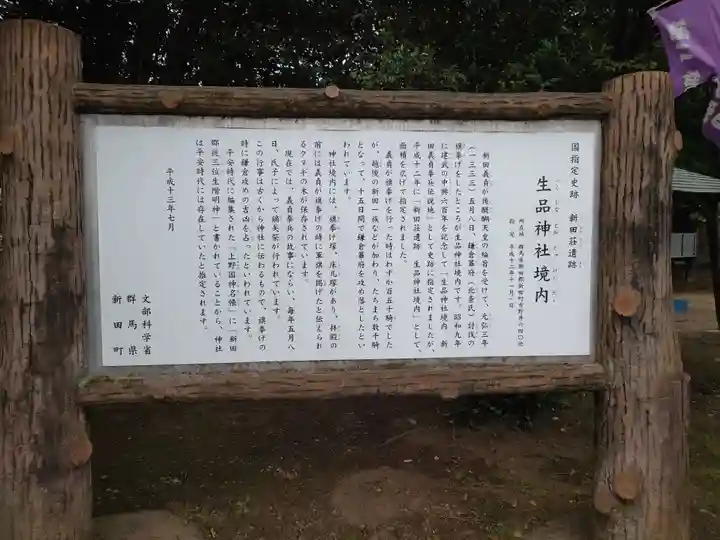 国指定史跡　新田荘遺跡
生品神社境内
いくしなじんじゃけいだい
所在地　群馬県新田郡新田町市野井六四〇他
指　定　平成十二年十一月一日
新田義貞が後醍醐天皇の綸旨を受けて、元弘三年
（一三三三）五月八日、鎌倉幕府（北条氏）討伐の
旗挙げをしたところが生品神社境内です。昭和九年
に建武の中興六百年を記念して「生品神社境内　新
田義貞挙兵伝説地」として史跡に指定されましたが、
平成十二年に「新田荘遺跡　生品神社境内」として、
面積を広げて指定されました。
義貞が旗挙げを行った時はわずか百五十騎でした
が、越後の新田一族などが加わり、たちまち数千騎
となって、十五日間で鎌倉幕府を攻め落としたとい
われています。
神社境内には、旗挙げ塚、床几塚があり、拝殿の
前には義貞が旗挙げの時に軍旗を掲げたと伝えられ
るクヌギの木が保存されています。
現在では、義貞挙兵の故事にならい、毎年五月八
日、氏子によって鏑矢祭が行われています。
この行事は古くから神社に伝わるもので、旗挙げの
時に鎌倉攻めの吉凶を占ったといわれています。
平安時代に編集された「上野国神名帳」に「新田
郡従三位生階明神」と書かれていることから、神社
は平安時代には存在していたと推定されます。
平成十三年七月
文部科学省
群馬県
新田町